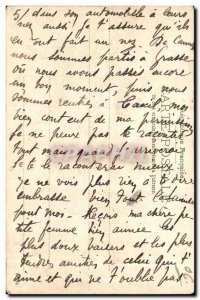 5/ dans son automobile à cours
moi aussi, je t'assure qu'ils
en ont fait un nez. De Cannes
nous sommes partis à Grasse
où nous avons passés encore
un bon moment, puis nous
sommes rentrés à moi
bien content de ma permission
Je ne peux pas te raconter
tout mais quand j'arriverai
je te le raconterai mieux.
Je ne vois plus rien à dire
embrasse bien tout
pout moi. Reçois ma chère pe
tite femme bien aimée les
plus doux baisers et les plus
tendres amitiés de celui qui t'
aime et qui ne t'oublie pas